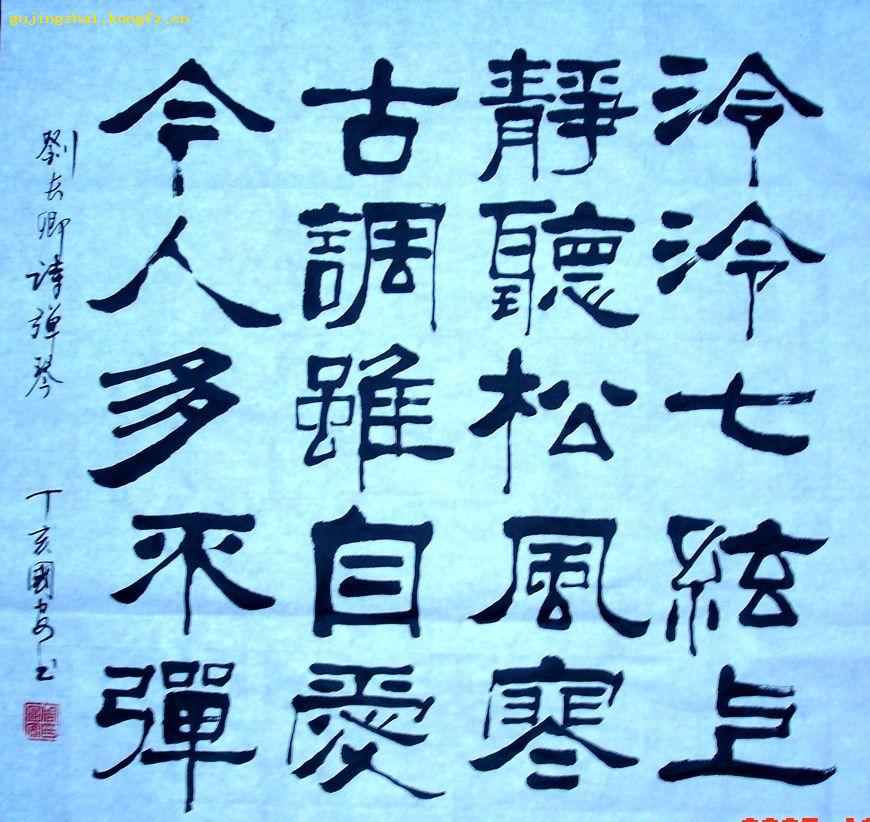 gujingzhai.kongfz.cn
泠泠七絃上
靜聽松風寒
古調雖自愛
今人多不彈
劉长卿诗弹琴
丁亥國安书